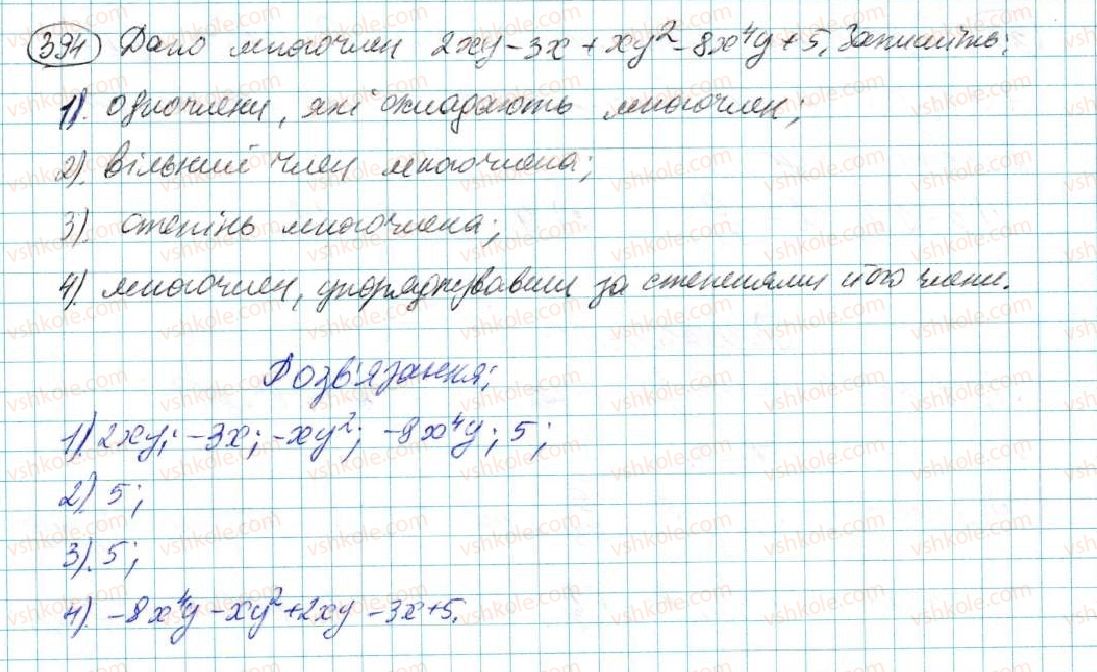 394 Дано многочлен 2xy - 3x + xy² - 8x⁴y + 5. Запишіть:
1). одночлени, які складають многочлен;
2). вільний член многочлена;
3). степінь многочлена;
4). многочлен, упорядкувавши за степенями його члени.
Розв'язання:
1). 2xy; -3x; -xy²; -8x⁴y; 5;
2). 5;
3). 5;
4). -8x⁴y - xy² + 2xy - 3x + 5.